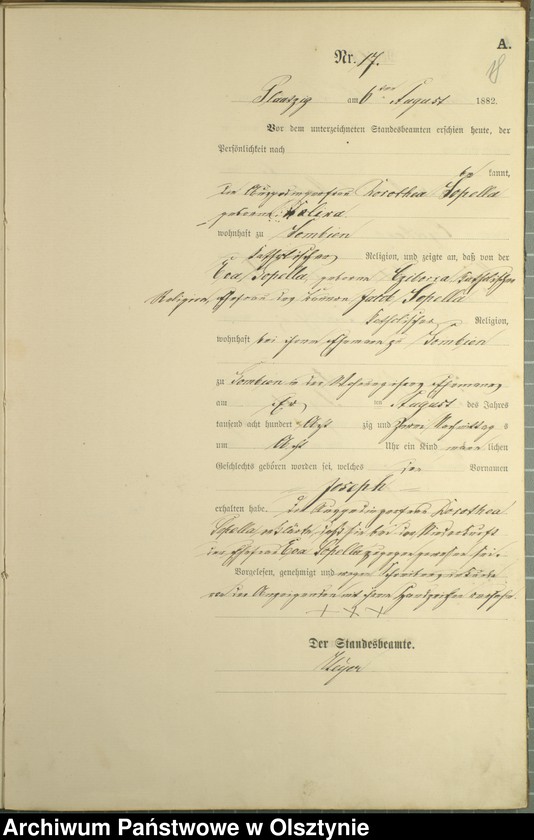 A.
Nr. 17.
18
Plautzig am 6ten August 1882.
Vor dem unterzeichneten Standesbeamten erschien heute, der
Persönlichkeit nach
be kannt,
die Dorothea Sopella
geborene Kalixa
wohnhaft zu Dembien
katholischer Religion, und zeigte an, daß von der
Eva Sopella, geborene katholischer
Religion, Ehefrau des Jacob Sopella
katholischer Religion,
wohnhaft bei ihrem Ehemanne zu Dembien
zu Dembien in der Wohnung ihres Ehemannes
am August des Jahres
tausend acht hundert Acht zig und Zwei Vormittag s
um Acht Uhr ein Kind männ lichen
Geschlechts geboren worden sei, welches den Vornamen
Joseph
erhalten habe. Die Dorothea
Sopella erklärte, daß sie bei der Niederkunft
der Ehefrau Eva Sopella zugegen gewesen sei.
Vorgelesen, genehmigt und wegen Schreibensunkunde
von der Anzeigenden mit ihrem Handzeichen versehen
+ + +
Der Standesbeamte.
Meyer
Archiwum Państwowe w Olsztynie